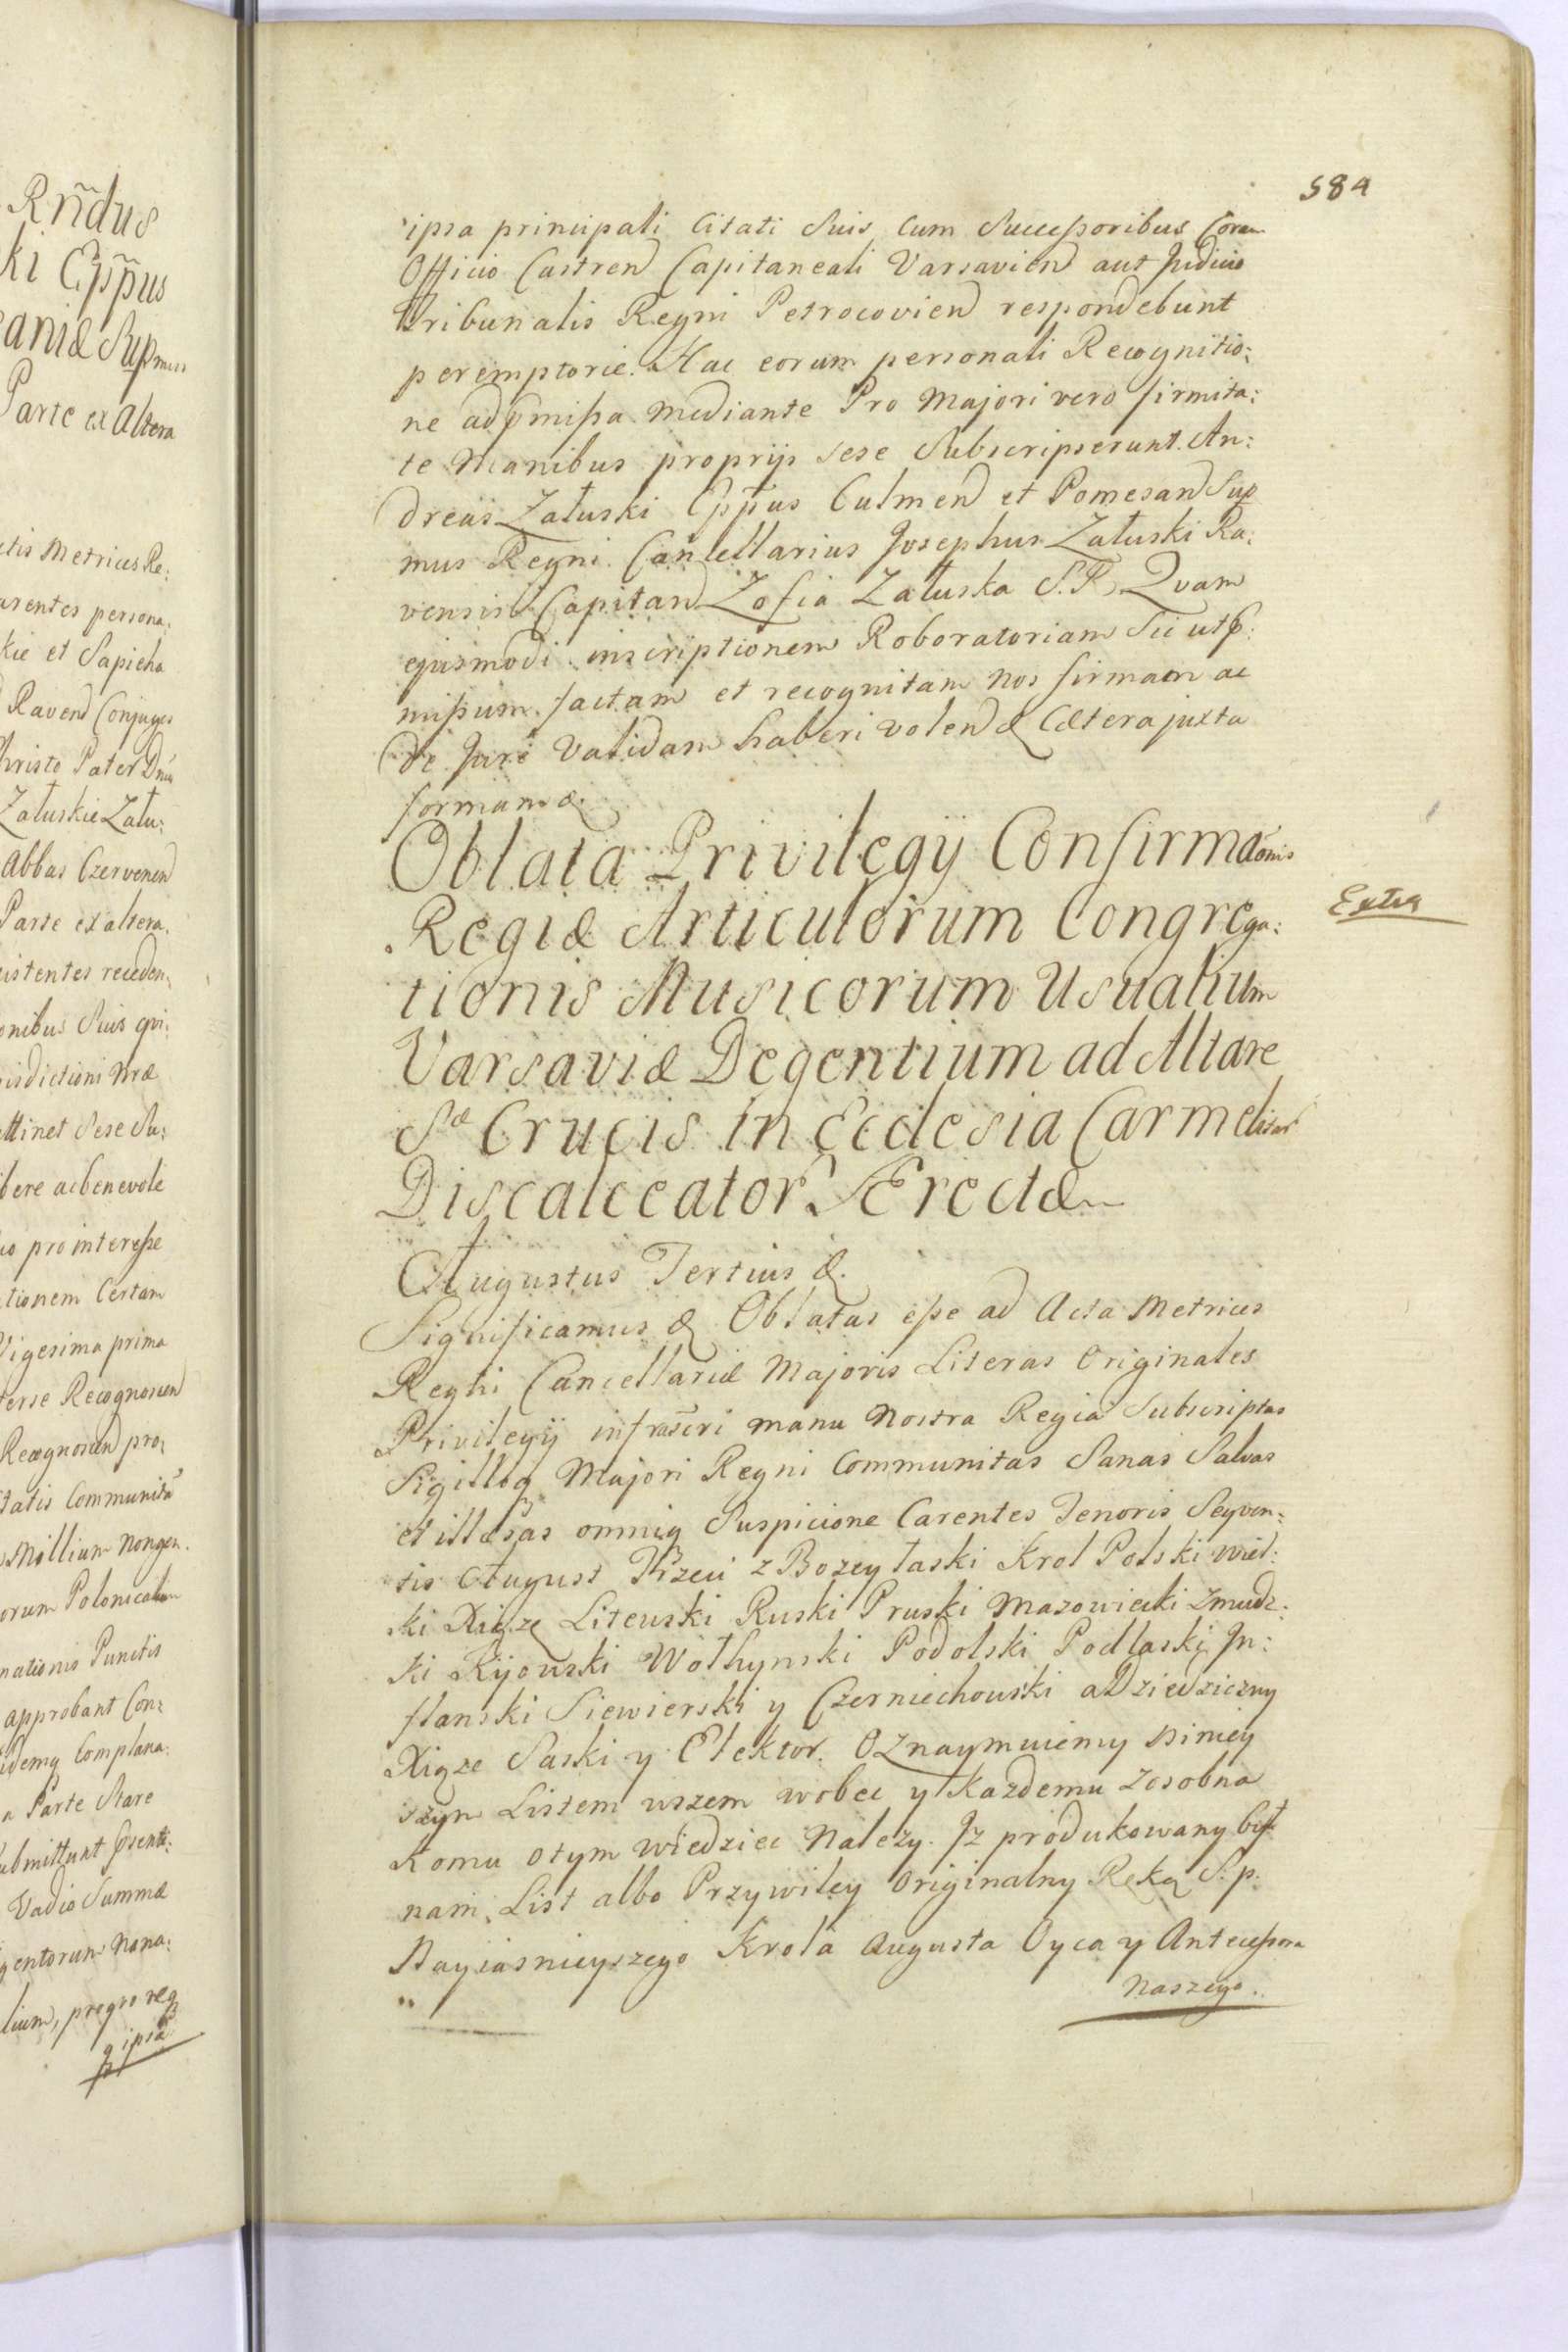 Rñdus
ki Epp̃us
aniæ Supmus
Parte ex Altera
ctis Metrices Re:
arentes persona:
kie et Sapieha
Ravend Conjuges
hristo Pater Dnus
Zału:
Załuskie Zału:
Abbas Czervenen
Parte ex altera.
istentes receden:
onibus Suis qvi:
isdictioni nræ
ttinet Sese Su:
ibere ac benevole
pro interesse
tionem Certam
Vigesima prima
Recognoscen
Recognoscend pro:
tatis Communita
Millium nongen.
orum Polonicalium
nationis Punctis
approbant Con:
idemq Complana:
a Parte Stare
ubmittunt
Vadio Summæ
gentorum nona:
lium, proqvo
ipsa
584
ipsa principali Citati Suis cum Successoribus Coram
Officio Castrend Capitaneali Varsaviend aut Judicio
Tribunalis Regni Petrocoviend respondebunt
peremptorie. Hac eorum personali Recognitio:
ne ad pmissa mediante Pro Majori vero firmita:
te Manibus proprijs sese Subscripserunt. An:
dreas Załuski Epp̃us Culmend et Pomesand Sup
mus Regni Cancellarius Josephus Załuski Ra:
vensis Capitand Zofia Załuska S. R. Qvam
ejusmodi inscriptionem Roboratoriam Sic ut p:
missum factam et recognitam nos firmam ac
de Jure Validam haberi volend & Cætera juxta
formam &.
Oblata Privilegij Confirmaõnis
Regiæ Articulorum Congrega:
tionis Musicorum Usualium
Varsaviæ Degentium ad Altare
Sæ Crucis in Ecclesia Carmelitar
Discalceator Erectæ
Extra
Augustus Tertius &.
Significamus & Oblatas esse ad Acta Metrices
Regni Cancellariæ Majoris Literas Originales
Privilegij infrascri manu Nostra Regia Subscriptas
Sigilloq Majori Regni Communitas Sanas Salvas
et illæsas omniq Suspicione Carentes Tenoris Seqven:
tis August Trzeci z Bozey łaski Krol Polski wiel:
ki Xiąze Litewski Ruski Pruski Mazowiecki Zmudz:
ki Kijowski Wołhynski Podolski Podlaski Jn:
flanski Siewierski y Czerniechowski a Dziedziczny
Xiąze Saski y Elektor. Oznaymuiemy Niniey
szym Listem wszem wobec y kazdemu zosobna
Komu otym wiedziec Nalezy. Jz produkowany był
nam List albo Przywiley Originalny Ręką S. p.
Nayiasnieyszego Krola Augusta Oyca y Antecessora
Naszego.